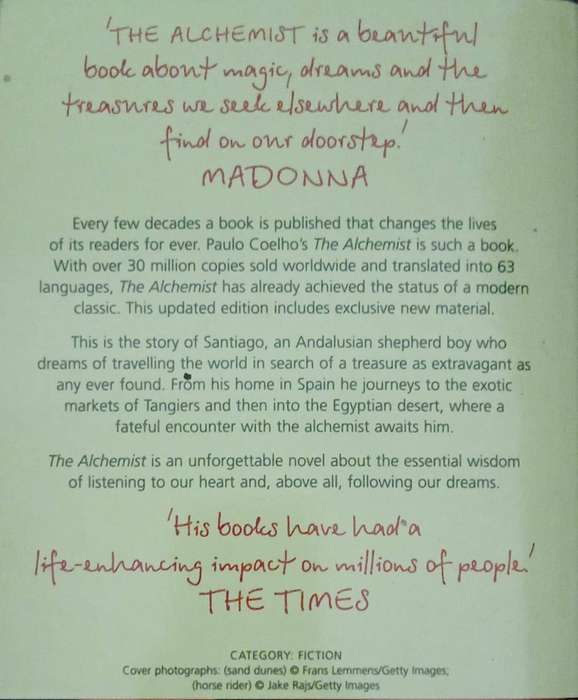 'THE ALCHEMIST is a beautiful
book about magic, dreams and the
treasures we seek elsewhere and then
find on our doorstep.'
MADONNA
Every few decades a book is published that changes the lives
of its readers for ever. Paulo Coelho's The Alchemist is such a book.
With over 30 million copies sold worldwide and translated into 63
languages, The Alchemist has already achieved the status of a modern
classic. This updated edition includes exclusive new material.
This is the story of Santiago, an Andalusian shepherd boy who
dreams of travelling the world in search of a treasure as extravagant as
any ever found. From his home in Spain he journeys to the exotic
markets of Tangiers and then into the Egyptian desert, where a
fateful encounter with the alchemist awaits him.
The Alchemist is an unforgettable novel about the essential wisdom
of listening to our heart and, above all, following our dreams.
'His books have had a
life-enhancing impact on millions of people.'
THE TIMES
CATEGORY: FICTION
Cover photographs: (sand dunes) © Frans Lemmens/Getty Images;
(horse rider) © Jake Rajs/Getty Images